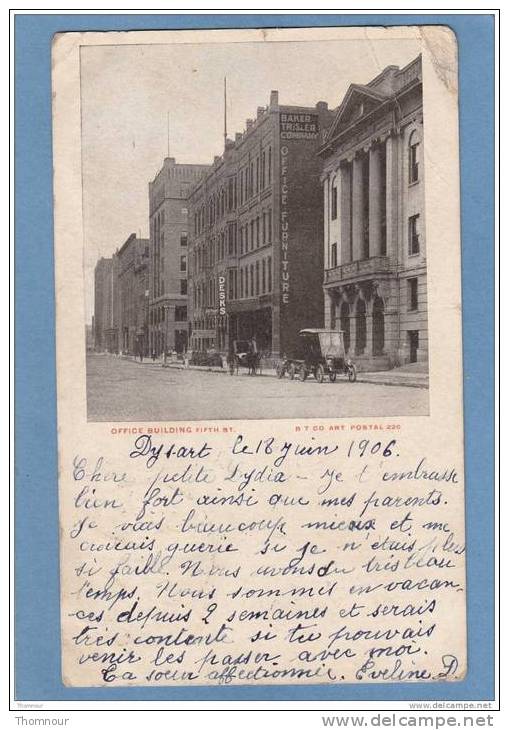 BAKER
TRISLER
COMPANY
OFFICE FURNITURE
DESKS
OFFICE BUILDING FIFTH ST. B T CO ART POSTAL 220
Dysart, le 18 juin 1906.
Chère petite Lydia - Je t'embrasse
bien fort ainsi que mes parents.
Je vias beaucoup mieux et me
croirais guérie si je n'étais plus
si faible. Nous avons du très beau
temps. Nous sommes en vacan-
ces depuis 2 semaines et serais
très contente si tu pouvais
venir les passer avec moi.
Ta soeur affectionnée. Eveline D.
Thomnour
www.delcampe.net